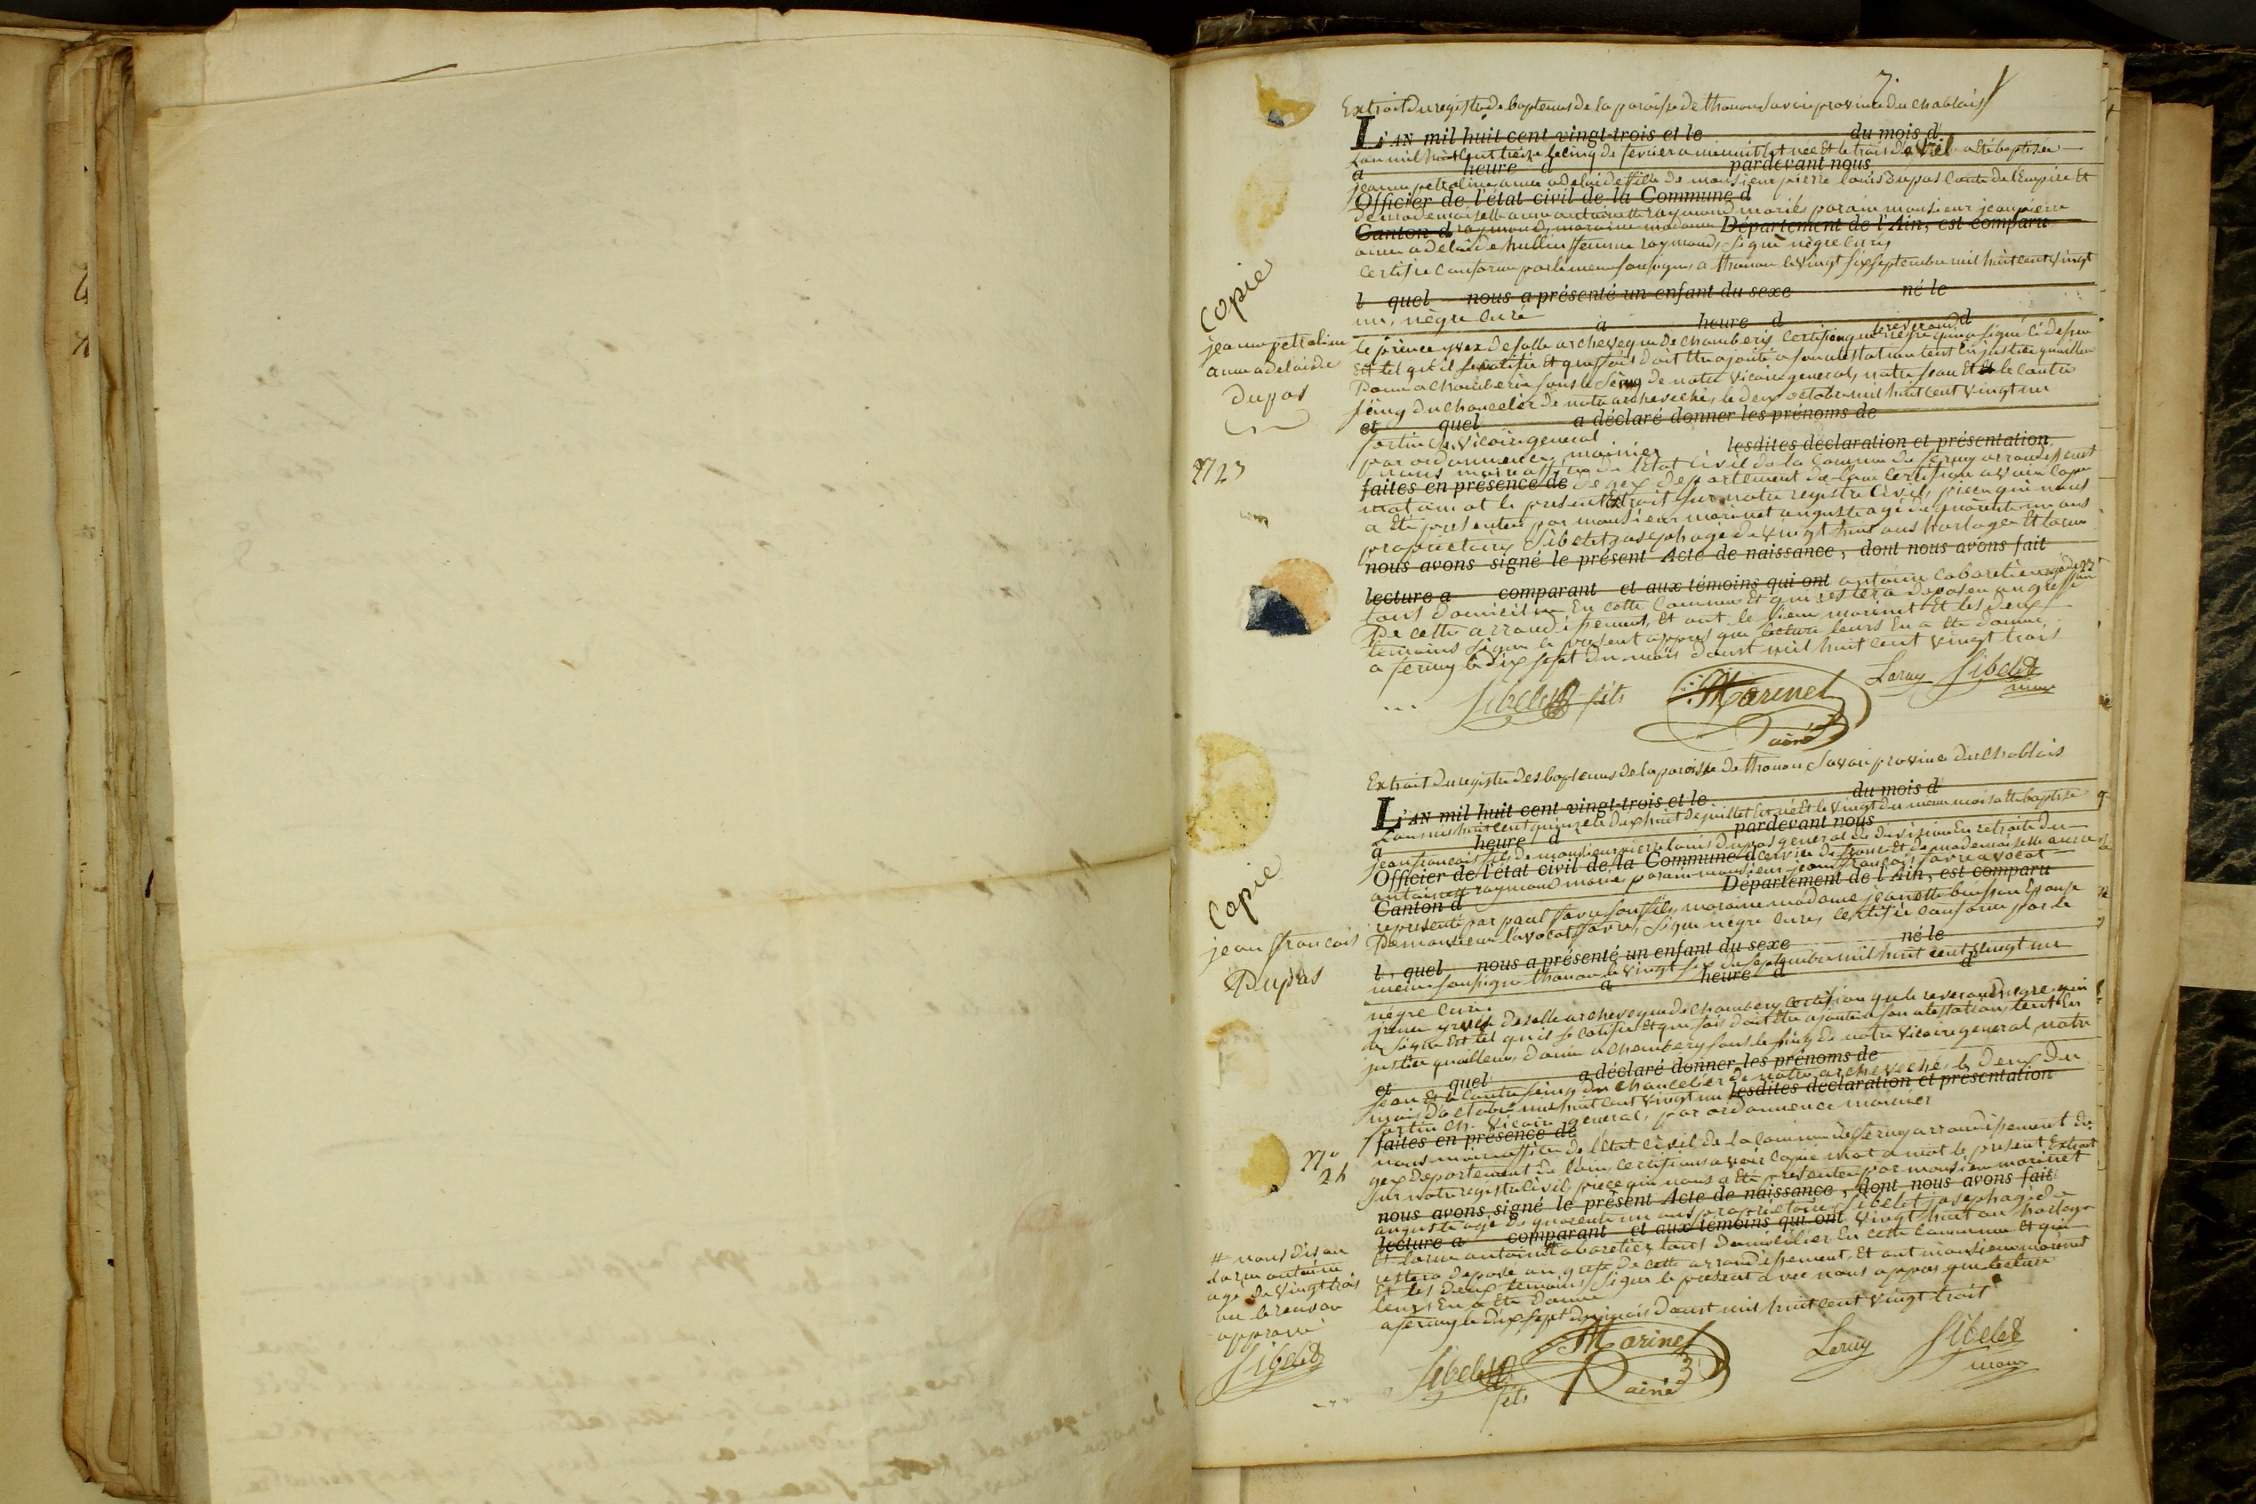 7.
Extrait du registre de baptemes de la paroisse de thonon Savoie province du chablais
L'AN mil huit cent vingt-trois et le du mois d
Lan mil huit cent treize le cinq de fevrier a minuit Est née Et le trois d'avril a Eté baptisée
à heure d pardevant nous
jeanne petroline anne adelaide fille de monsieur pierre louis Dupas Conte de l'Empire Et
Officier de l'état civil de la Commune d
de mademoiselle anne antoinette raymond mariés parain monsieur jean pierre
Canton d raymond, maraine madame Département de l'Ain, est comparu
anne adelaide hullin femme raymond, signé nègre Curé
Certifié Conforme par le meme soussigné a thonon le vingt six septembre mil huit cent vingt
l quel nous a présenté un enfant du sexe né le
un, nègre Curé
à heure d d
Est tel qu'il se qualifie Et que foi doit Etre ajoutée a son atestation tant En justice qu'ailleur
Donné a Chamberi sous le Seing de notre Vicaire general, notre seau Et le Contre
seing du Chancelier de notre archeveché, le deux octobre mil huit cent vingt un
et quel a déclaré donner les prénoms de
fortin ch. Vicaire general
par ordonnence, moinier lesdites déclaration et présentation
nous maire officier de l'Etat Civil de la Commune de ferney arrondissement
faites en présence de de gex departement de l'ain Certifions avoir Copié
mot a mot le present Extrait sur notre registre Civil, piece qui nous
a Eté presentée par monsieur marinet auguste agé de quarente un ans
propriétaire, Sibelet joseph agé de vingt huit ans horloger Et larue
nous avons signé le présent Acte de naissance, dont nous avons fait
lecture a comparant et aux témoins qui ont antoine Cabaretier agé de 23
tous domicilier En cette Commune Et qui restera deposée au greffe
De cette arrondissement, Et ont le sieur marinet Et les deux
temoins signer le present appres que lecture leurs En a Eté donné
a ferney le dix sept du mois d'aoust mil huit cent vingt trois
Sibelet fils Marinet ainé Laruy Sibelet maire
Copie
jeanne petroline
anne adelaide
Dupas
N 23
Extrait du registre des baptemes de la paroisse de thonon Savoie province du Chablais
L'AN mil huit cent vingt-trois et le du mois d
Lan mil huit cent quinze le dix huit de juillet Est né Et le vingt du meme mois a Eté baptisé
à heure d pardevant nous
jean francois fils de monsieur pierre louis dupas general de division En retraite du
Officier de l'état civil de la Commune d service de france Et de mademoiselle anne
antoinette raymond mariés, parain monsieur jean francois favre avocat
Canton d Département de l'Ain, est comparu
representé par paul favre son fils, maraine madame jeanette buisson Epouse
De monsieur l'avocat favre, signé nègre Curé, Certifié Conforme par le
l quel nous a présenté un enfant du sexe né le
meme soussigné thonon le vingt six de septembre mil huit cent vingt un
à heure d d
nègre Curé
justice qu'ailleur, donné a Chambery sous le seing de notre Vicaire general notre
et quel a déclaré donner les prénoms de
seau Et le Contre seing du chancelier de notre archeveché, le deux du
mois d'octobre mil huit cent vingt un lesdites déclaration et présentation
fortin ch. Vicaire general, par ordonnence moinier
faites en présence de
nous maire officier de l'Etat Civil de la Commune de ferney arrondissement de
gex departement de l'ain, Certifions avoir Copié mot a mot le present Extrait
sur notre registre Civil piece qui nous a Eté presentée par monsieur marinet
nous avons signé le présent Acte de naissance, dont nous avons fait
auguste agé de quarente un ans proprietaire, Sibelet joseph agé de
lecture a comparant et aux témoins qui ont vingt huit an horloger
Et larue antoine Cabaretier, tous domicilier En cette Commune Et qui
restera deposée au greffe de cette arrondissement, Et ont monsieur marinet
Et les deux temoins signer le present avec nous appres que lecture
leurs En a Eté donné
a ferney le dix sept du mois d'aoust mil huit cent vingt trois
Sibelet fils Marinet ainé Laruy Sibelet maire
Copie
jean francois
Dupas
N°
24
# nous dis an
larue antoine
agé de vingt trois
an le renvoi
approuvé
Sibelet